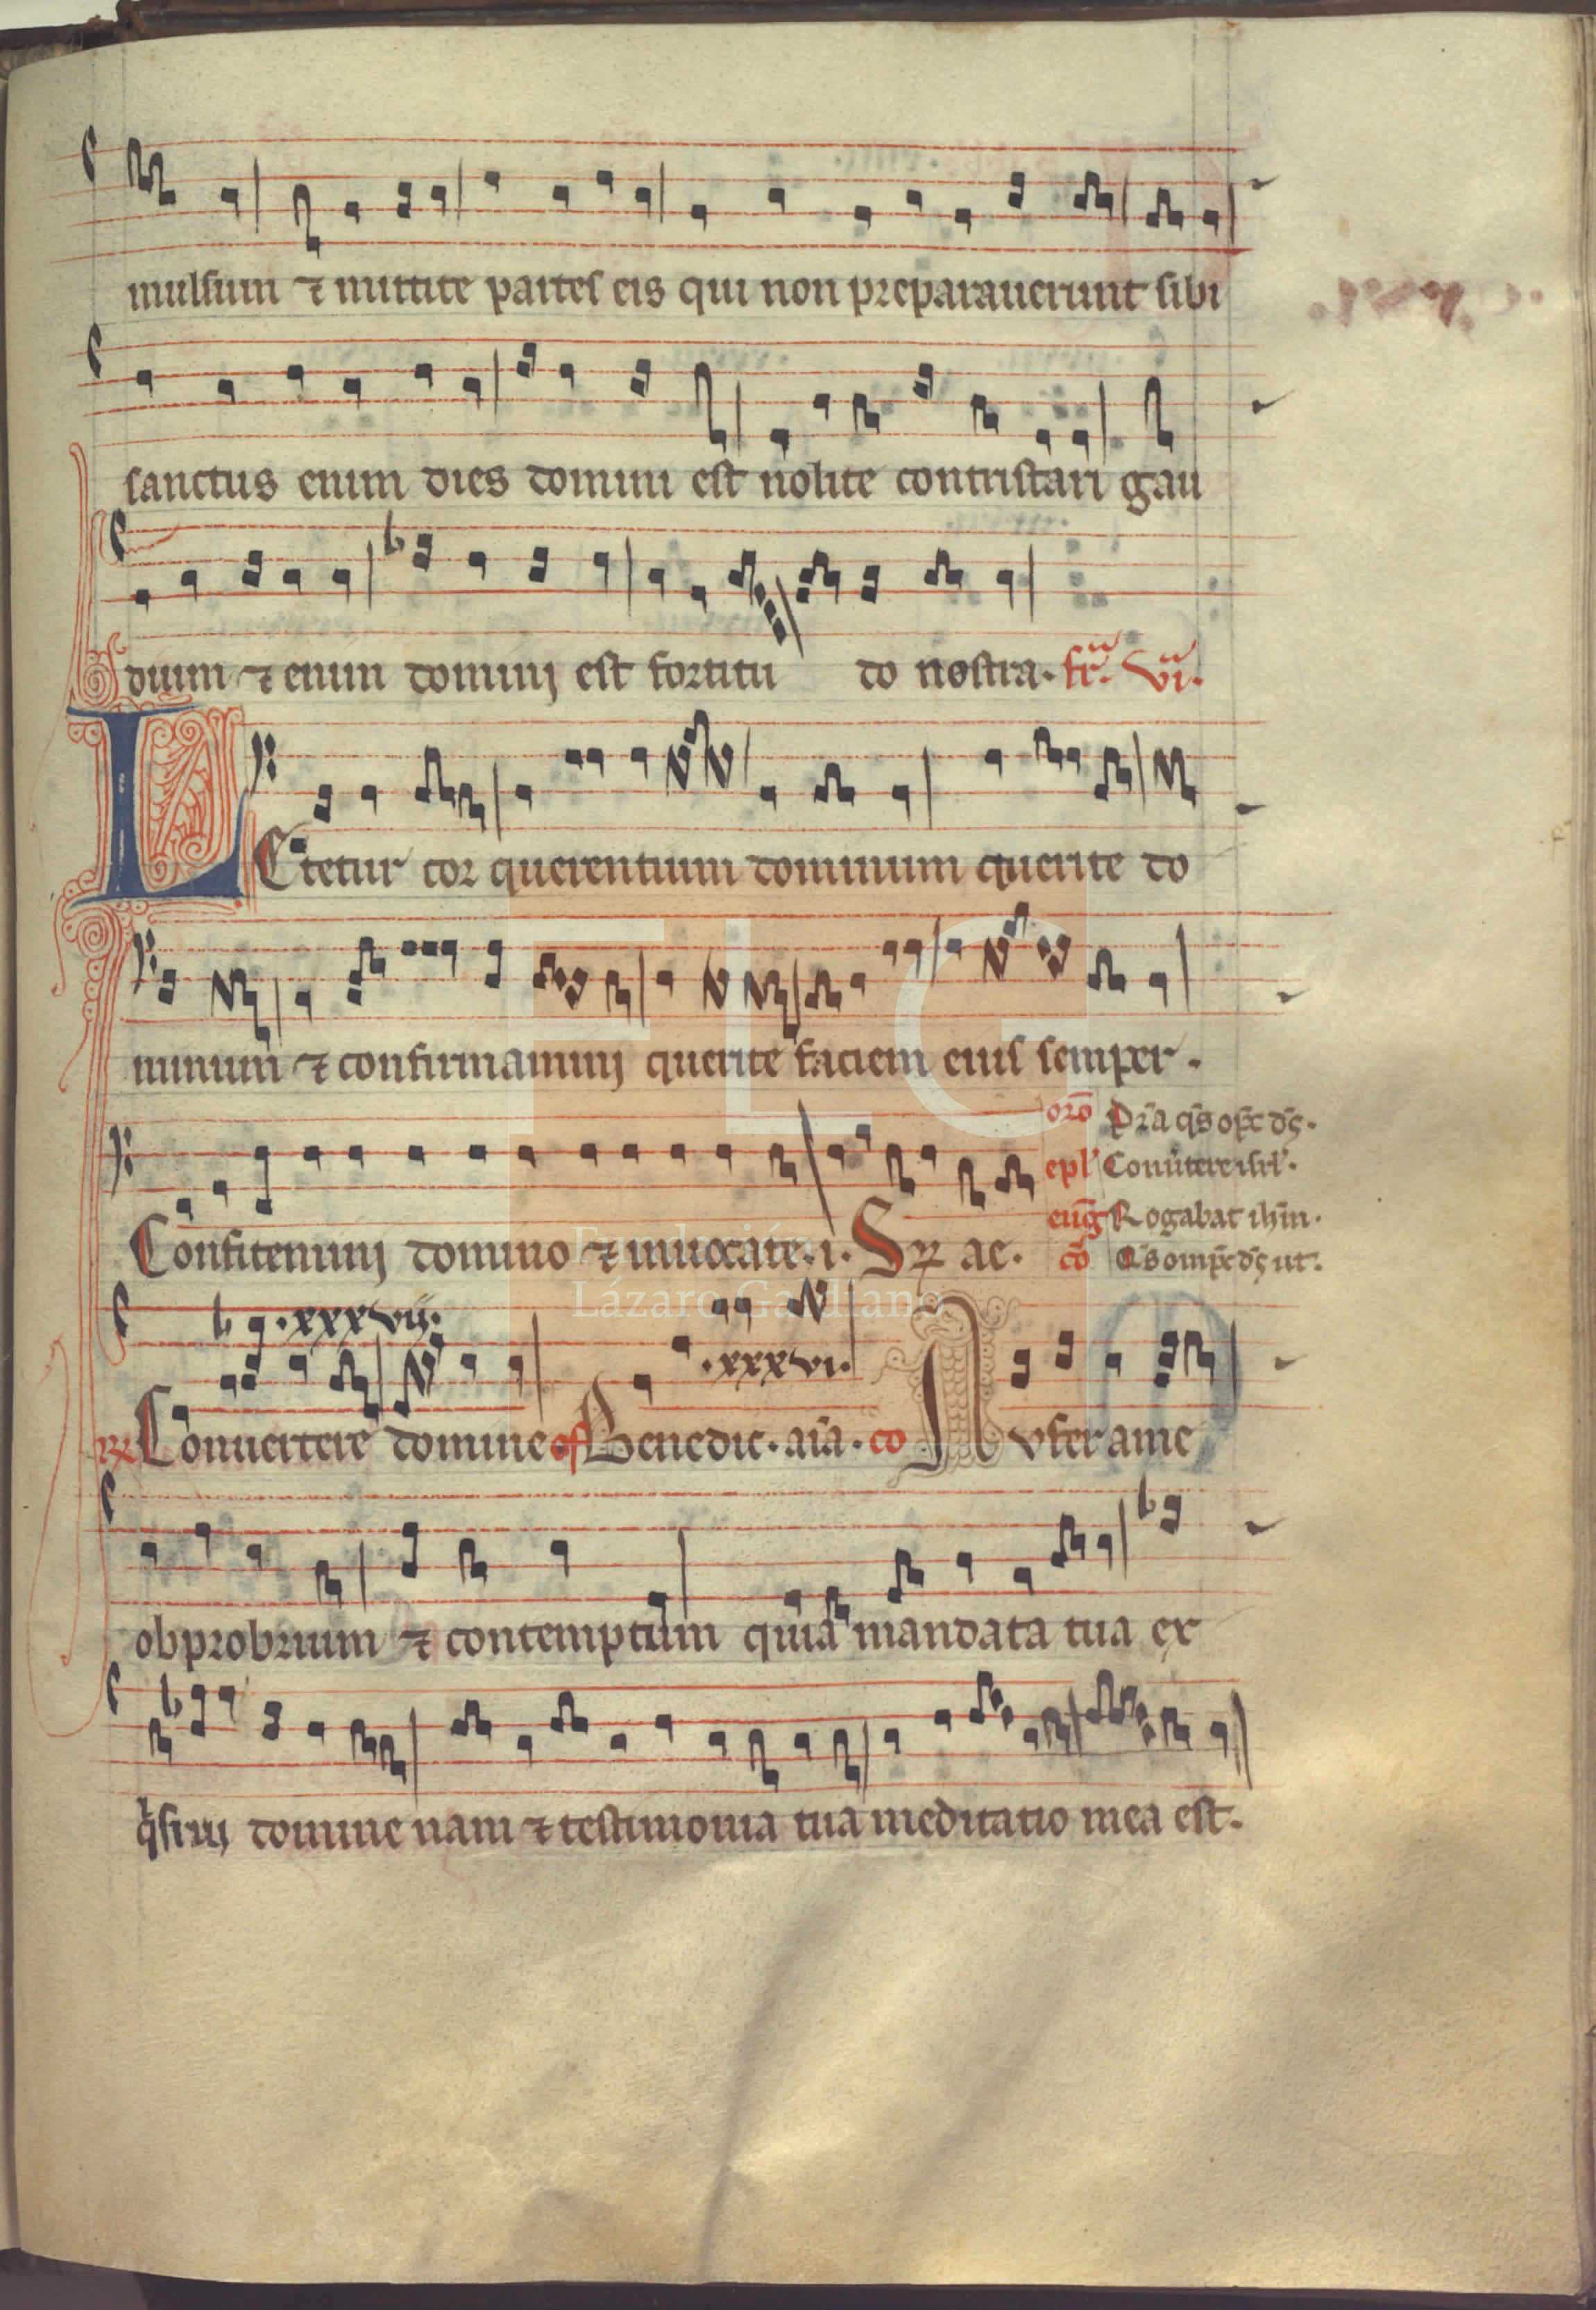 mulsum ⁊ mittite partes eis qui non preparauerunt sibi
sanctus enim dies domini est nolite contristari gau
dium ⁊ enim domini est fortitu do nostra. fr̄. vi.
LEtetur cor querentium dominum querite do
minum ⁊ confirmamini querite faciem eius semper.
Confitemini domino ⁊ inuocate. i. Sꝝ ac.
oro Pr̄a qs̄ op̄c ds̄.
epl' Conuertere isrl'.
euḡ Rogabat ihm̄.
co Qs̄ omp̄c ds̄ ut.
.xxxvii.
.xxxvi.
Conuertere domine of Benedic. aīa. co Aufer a me
obprobrium ⁊ contemptum quia mandata tua ex
q̄siui domine nam ⁊ testimonia tua meditatio mea est.
FLG
Fundación
Lázaro Galdiano